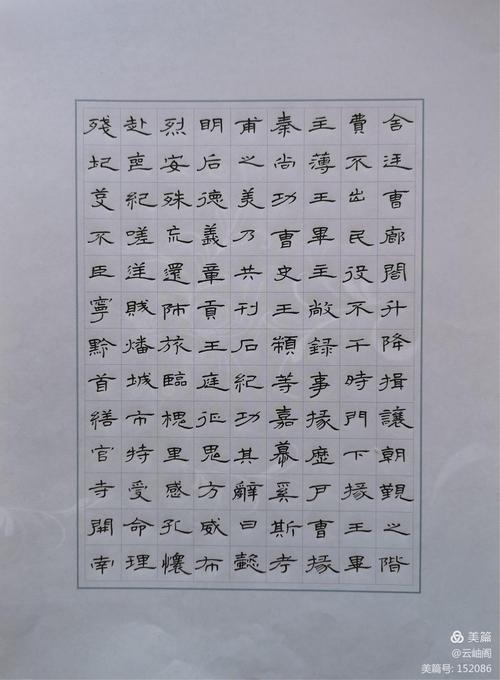 舍廷曹廊閣升降揖讓朝覲之階
費不出民役不干時門下掾王畢
主薄王畢主敞録事掾歷戶曹掾
秦尚功曹史王顓等嘉慕奚斯考
甫之美乃共刊石紀功其辭曰懿
明后德義章貢王庭征鬼方威布
烈安殊荒還師旅臨槐里感孔懷
赴喪紀嗟逆賊燔城市特受命理
殘圮芟不臣寧黔首繕官寺開南
美篇
@云岫阁
美篇号: 152086